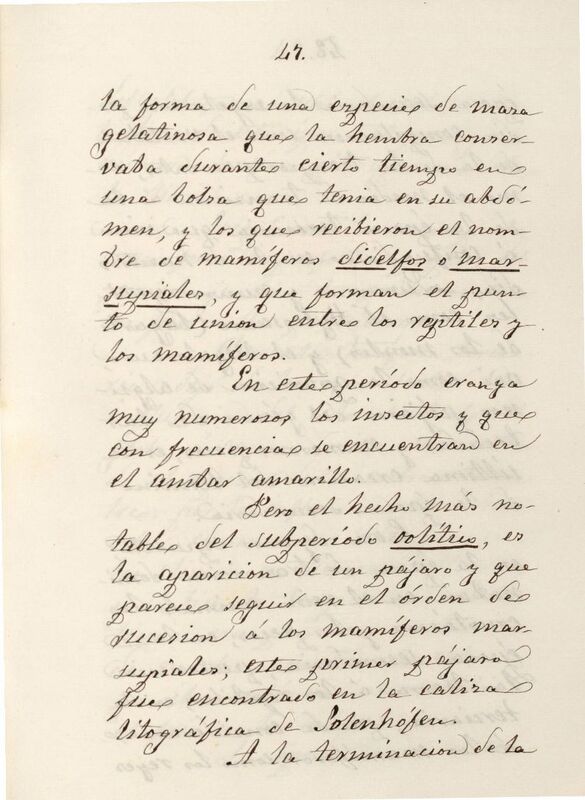 47.
la forma de una especie de masa
gelatinosa que la hembra conser-
vaba durante cierto tiempo en
una bolsa que tenia en su abdó-
men, y los que recibieron el nom-
bre de mamíferos didelfos ó mar-
supiales, y que forman el pun-
to de union entre los reptiles y
los mamíferos.
En este período eran ya
muy numerosos los insectos y que
con frecuencia se encuentran en
el ámbar amarillo.
Pero el hecho más no-
table del subperíodo oolítico, es
la aparicion de un pájaro y que
parece seguir en el orden de
sucesion á los mamíferos mar-
supiales; este primer pájaro
fue encontrado en la caliza
litográfica de Solenhófen.
A la terminacion de la